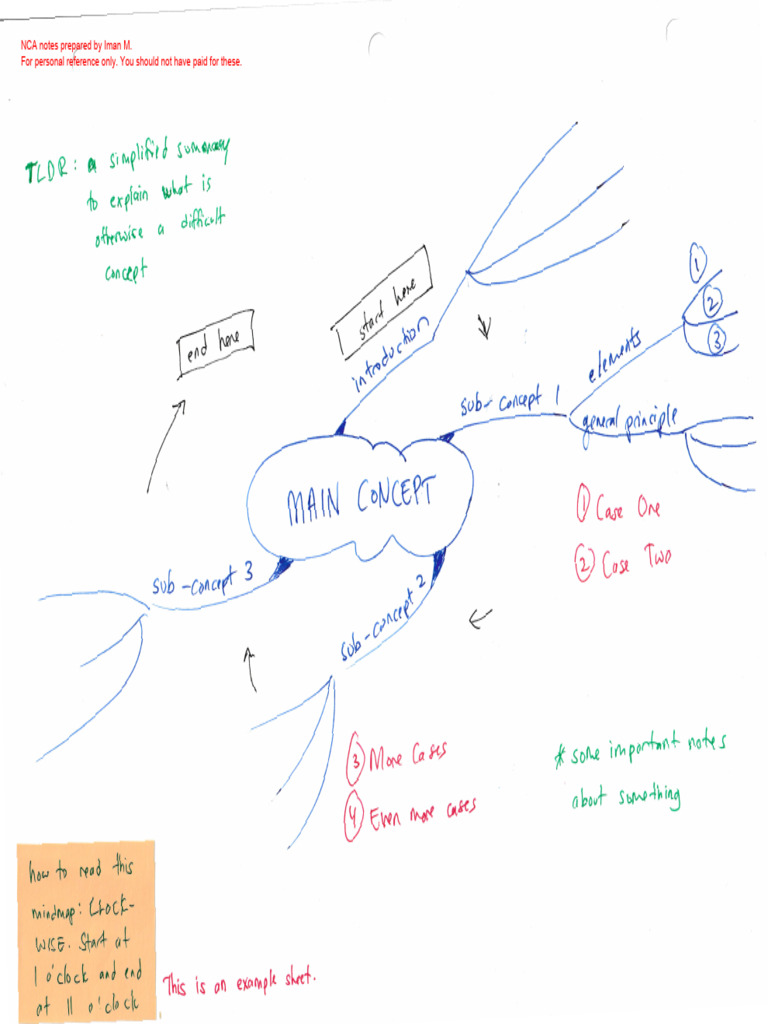 NCA notes prepared by Iman M.
For personal reference only. You should not have paid for these.
TLDR: a simplified summary
to explain what is
otherwise a difficult
concept
start here
introduction
sub-concept 1
elements
①
②
③
general principle
① Case One
② Case Two
MAIN CONCEPT
sub-concept 2
③ More Cases
④ Even more cases
* some important notes
about something
sub-concept 3
end here
how to read this
mindmap: CLOCK-
WISE. Start at
1 o'clock and end
at 11 o'clock
This is an example sheet.